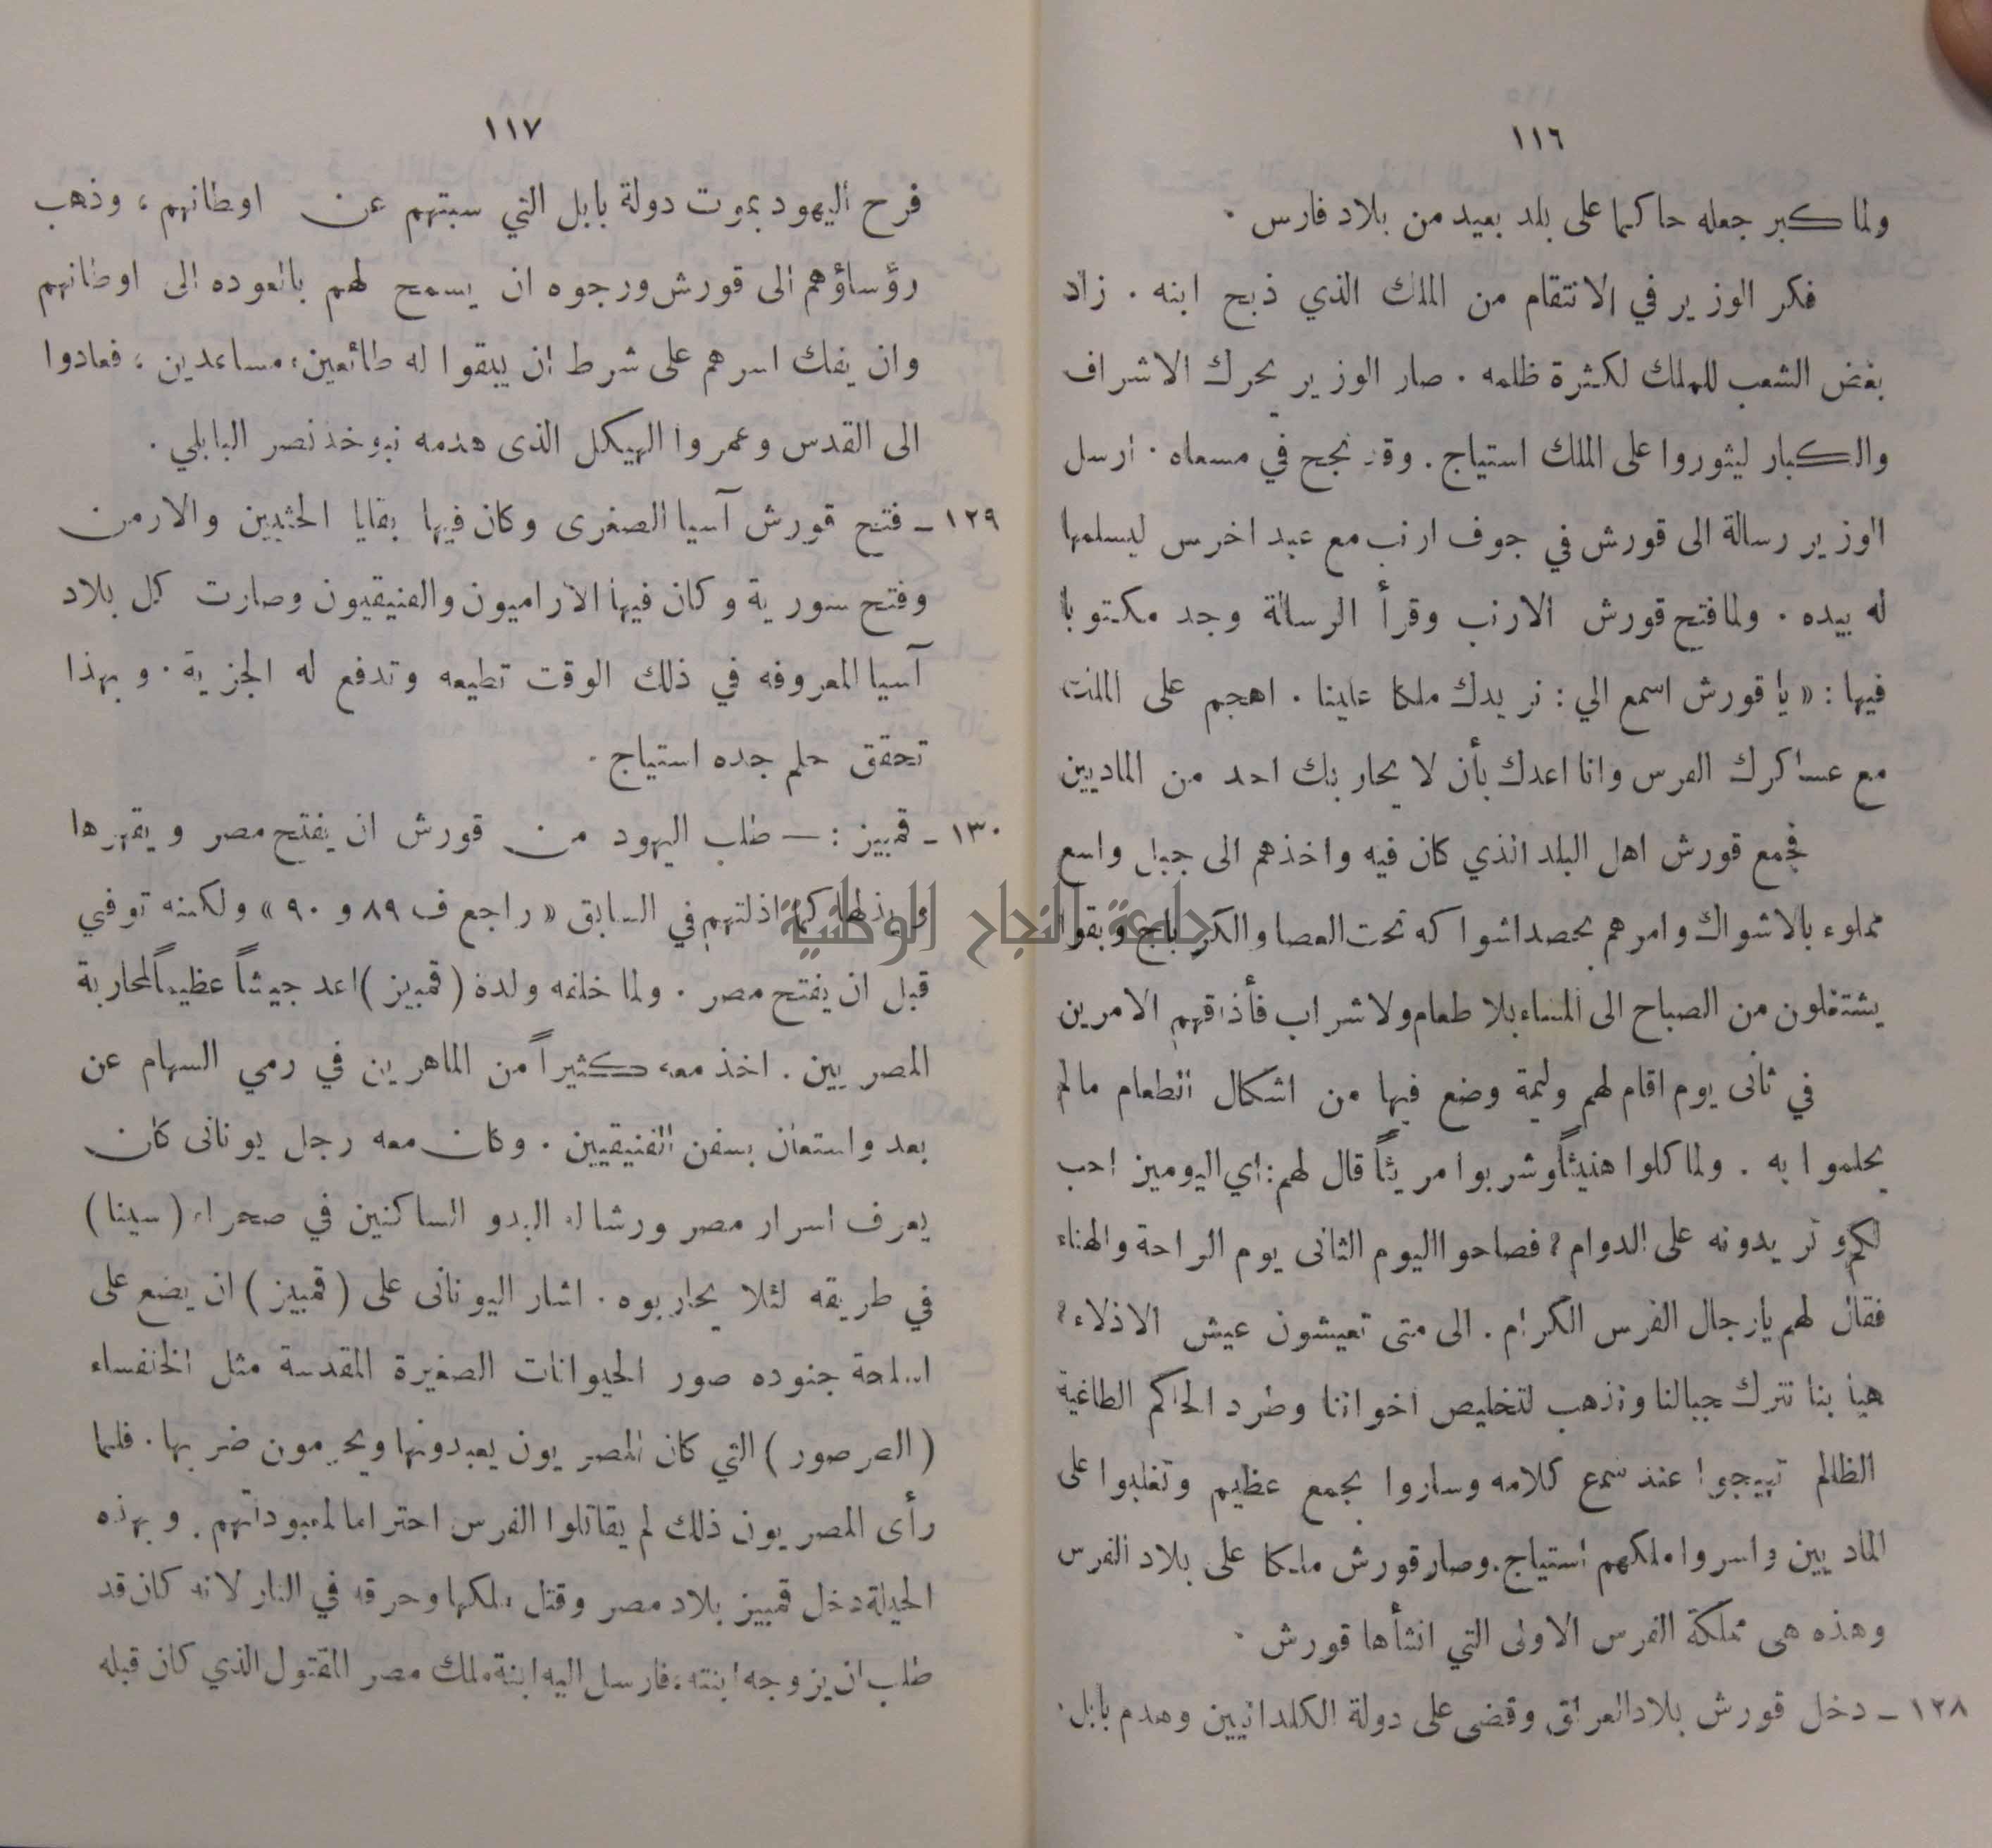 ١١٦
ولما كبر جعله حاكما على بلد بعيد من بلاد فارس .
فكر الوزير في الانتقام من الملك الذي ذبح ابنه . زاد
بغض الشعب للملك لكثرة ظلمه . صار الوزير يحرك الاشراف
والكبار ليثوروا على الملك استياج . وقد نجح في مسعاه . ارسل
الوزير رسالة الى قورش في جوف ارنب مع عبد اخرس ليسلمها
له بيده . ولما فتح قورش الارنب وقرأ الرسالة وجد مكتوبا
فيها : « يا قورش اسمع الي : نريدك ملكا علينا . اهجم على الملك
مع عساكرك الفرس وانا اعدك بأن لا يحاربك احد من الماديين
فجمع قورش اهل البلد الذي كان فيه واخذهم الى جبل واسع
مملوء بالاشواك وامرهم بحصد اشواكه تحت العصا والكرباج وبقوا
يشتغلون من الصباح الى المساء بلا طعام ولا شراب فأذاقهم الامرين
في ثانى يوم اقام لهم وليمة وضع فيها من اشكال الطعام مالم
يحلموا به . ولما كلوا هنيئاً وشربوا مريئاً قال لهم : اي اليومين احب
لكم وتريدونه على الدوام ؟ فصاحوا اليوم الثانى يوم الراحة والهناء
فقال لهم يا رجال الفرس الكرام . الى متى تعيشون عيش الاذلاء ؟
هيا بنا نترك جبالنا ونذهب لتخليص اخواننا وطرد الحاكم الطاغية
الظالم تهيجوا عند سمع كلامه وساروا بجمع عظيم وتغلبوا على
الماديين واسروا ملكهم استياج . وصار قورش ملكا على بلاد الفرس
وهذه هى مملكة الفرس الاولى التي انشأها قورش .
١٢٨ ـ دخل قورش بلاد العراق وقضى على دولة الكلدانيين وهدم بابل .
١١٧
فرح اليهود بموت دولة بابل التي سبتهم عن اوطانهم ، وذهب
رؤساؤهم الى قورش ورجوه ان يسمح لهم بالعوده الى اوطانهم
وان يفك اسرهم على شرط ان يبقوا له طائعين ، مساعدين ، فعادوا
الى القدس وعمروا الهيكل الذى هدمه نبوخذنصر البابلي .
١٢٩ ـ فتح قورش آسيا الصغرى وكان فيها بقايا الحثيين والارمن
وفتح سورية وكان فيها الاراميون والفنيقيون وصارت كل بلاد
آسيا المعروفه في ذلك الوقت تطيعه وتدفع له الجزية . وبهذا
تحقق حلم جده استياج .
١٣٠ ـ قمبيز : — طلب اليهود من قورش ان يفتح مصر ويقهرها
ويذلها كما اذلتهم في السابق « راجع ف ٨٩ و ٩٠ » ولكنه توفي
قبل ان يفتح مصر . ولما خلفه ولده ( قمبيز ) اعد جيشاً عظيماً لمحاربة
المصريين . اخذ معه كثيراً من الماهرين في رمي السهام عن
بعد واستعان بسفن الفنيقيين . وكان معه رجل يونانى كان
يعرف اسرار مصر ورشا له البدو الساكنين في صحراء ( سينا )
في طريقه لئلا يحاربوه . اشار اليونانى على ( قمبيز ) ان يضع على
اسلحة جنوده صور الحيوانات الصغيرة المقدسة مثل الخنفساء
( الصرصور ) التي كان المصريون يعبدونها ويحرمون ضربها . فلما
رأى المصريون ذلك لم يقاتلوا الفرس احتراما لمعبوداتهم . وبهذه
الحيلة دخل قمبيز بلاد مصر وقتل ملكها وحرقه في النار لانه كان قد
طلب ان يزوجه ابنته ، فارسل اليه ابنة ملك مصر المقتول الذي كان قبله
جامعة النجاح الوطنية